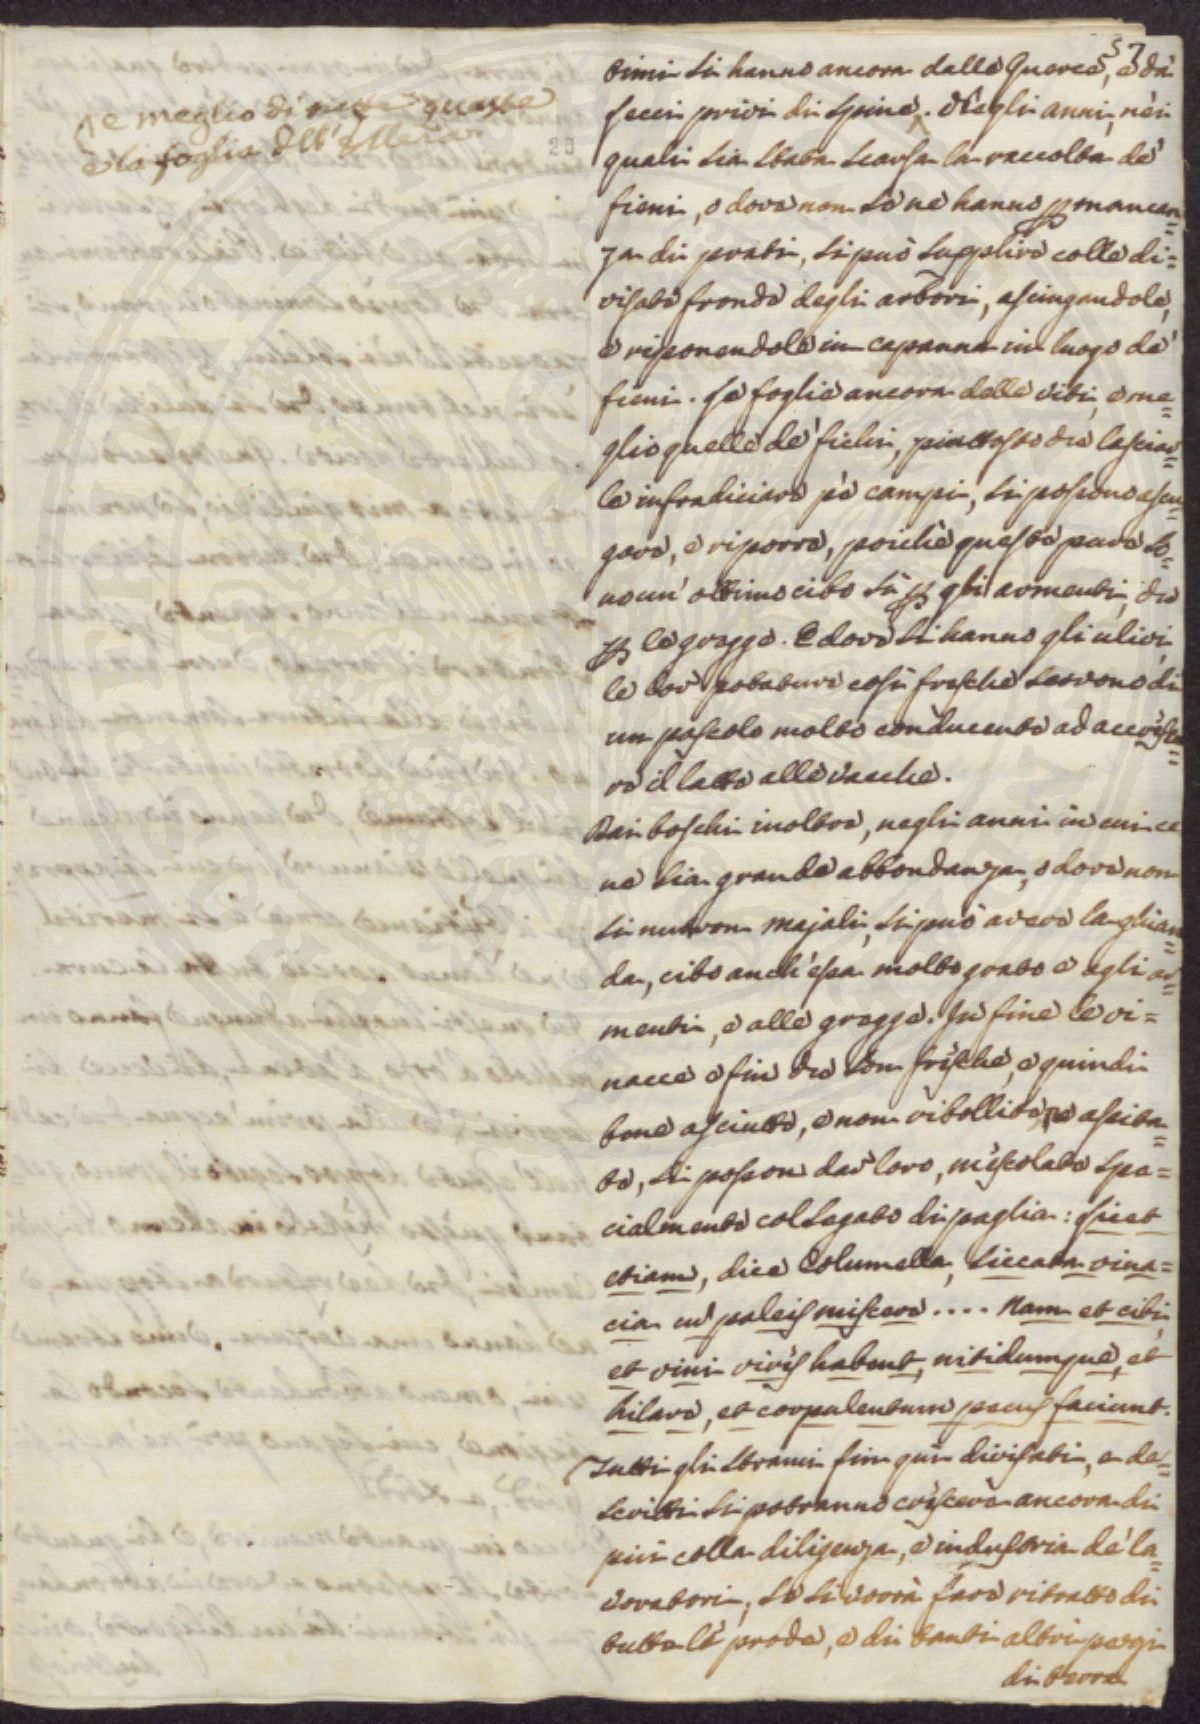 57
e meglio di tutte queste
è la foglia dell'
23
timi si hanno ancora dalle Querce, e da
lecci privi di spine. Negli anni, nei
quali sia stata scarsa la raccolta de'
fieni, o dove non se ne hanno p mancan=
za di prati, si può supplire colle di=
visate fronde degli arbori, asciugandole,
e riponendole in capanna in luogo de'
fieni. Le foglie ancora delle viti, e me=
glio quelle de' fichi, piuttosto che lasciar=
le infradiciare pe' campi, si possono asciu=
gare, e riporre, poichè queste pure so=
no un' ottimo cibo sì p gli armenti, che
p le gregge. E dove si hanno gli ulivi,
le lor potature così fresche servono di
un pascolo molto conducente ad accresce=
re il latte alle vacche.
Dai boschi inoltre, negli anni in cui ce
ne sia grande abbondanza, o dove non
si nutron majali, si può avere la ghian=
da, cibo anch' essa molto grato e agli ar=
menti, e alle gregge. In fine le vi=
nacce e fin che son fresche, e quindi
bene asciutte, e non ribollite,
te, si posson dar loro, mescolate spe=
cialmente col segato di paglia: licet
etiam, dice Columella, siccata vina=
cia cū paleis miscere .... Nam et cibi,
et vini vires habent, nitidumque, et
hilare, et corpulentum pecus faciunt.
Tutti gli strami fin qui divisati, e de=
scritti si potranno crescere ancora di
più colla diligenza, e industria de' la=
voratori, se si vorrà fare ritratto di
tutte le prode, e di tanti altri pezzi
di terra